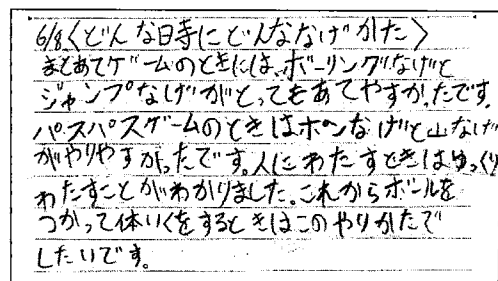 6/8〈どんな時にどんななげかた〉
まとあてゲームのときには、ボーリングなげと
ジャンプなげがとってもあてやすかったです。
パスパスゲームのときはポンなげと山なげ
がやりやすかったです。人にわたすときはゆっくり
わたすことがわかりました。これからボールを
つかって体いくをするときはこのやりかたで
したいです。